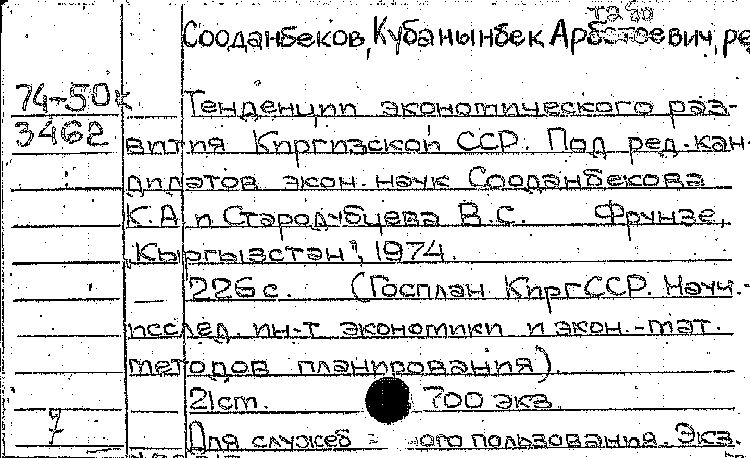 Сооданбеков, Кубанынбек Арботоевич, ре
74-50к Тенденции экономического раз-
3462 вития Киргизской ССР. Под ред. кан-
дидатов экон. наук Сооданбекова
К.А и Стародубцева В.С. Фрунзе,
"Кыргызстан", 1974.
226 с. (Госплан КиргССР. Научн.-
исслед. ин-т экономики и экон.-мат.
методов планирования)
21 cm. 700 экз.
7 Для служеб ного пользования. Экз.